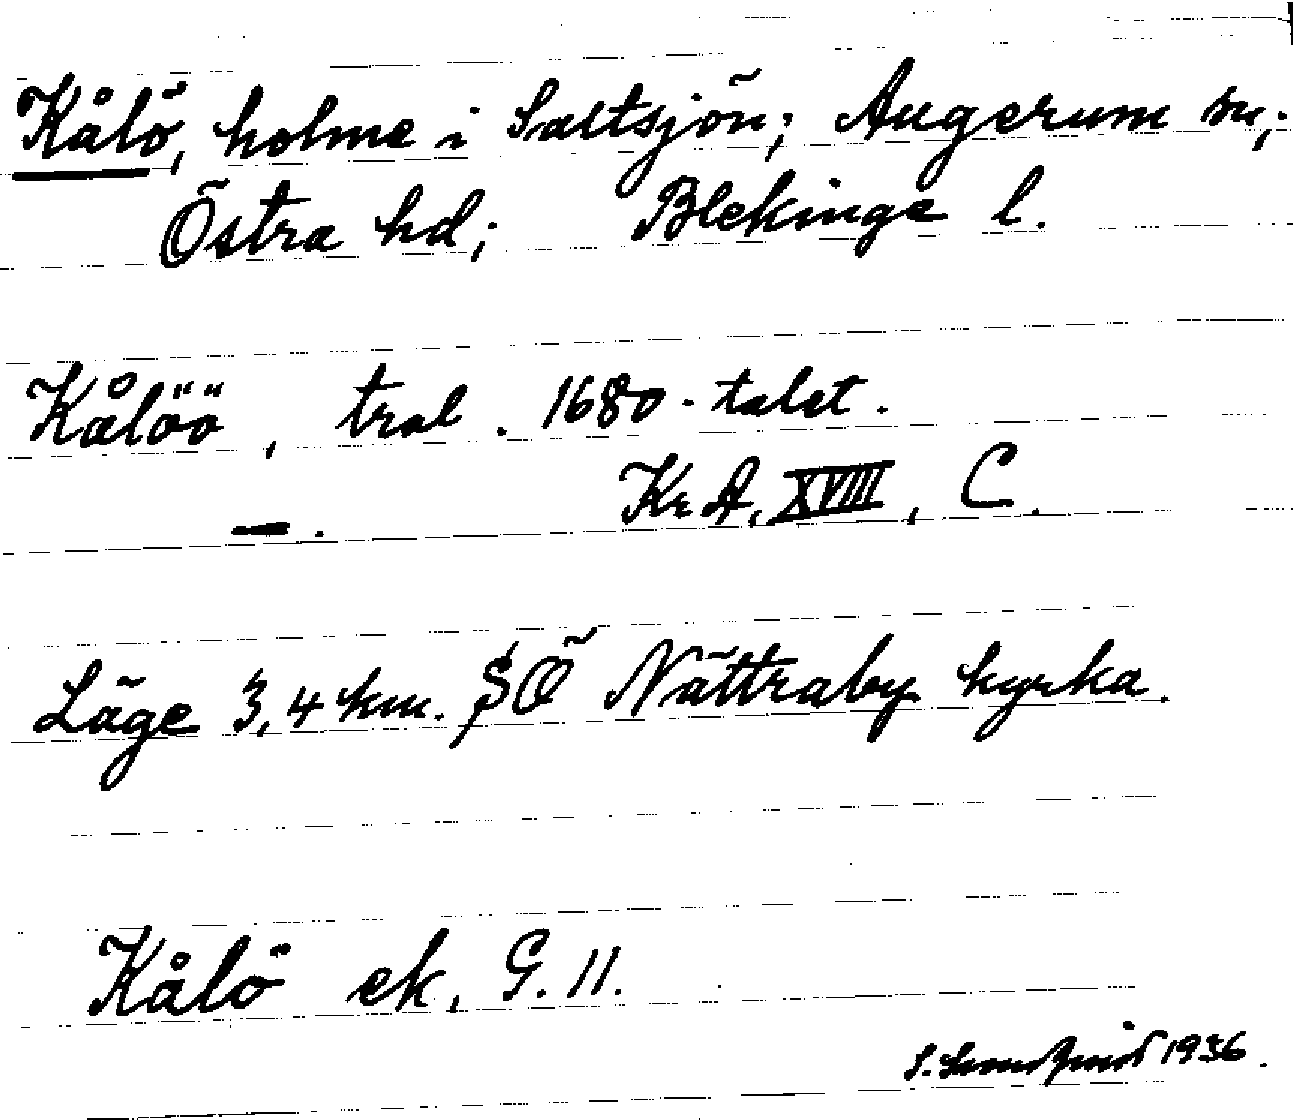 Kålö, holme i Saltsjön; Augerum sn;
Östra hd; Blekinge l.
Kålöö, tral. 1680-talet.
—. Kr A, XVIII, C.
Läge 3,4 km. SÖ Nättraby kyrka.
Kålö ek, G. 11.
S. 1936.